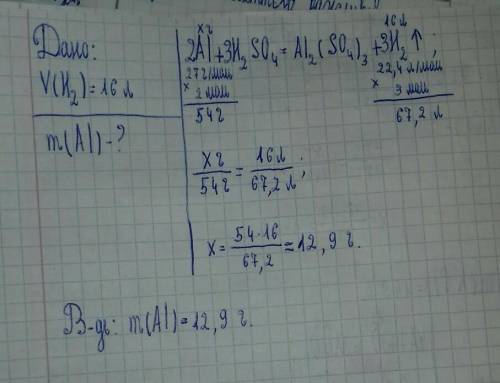 Дано:
V(H₂)=16 л
m(Al)-?
x г 16 л
2Al+3H₂SO₄=Al₂(SO₄)₃+3H₂↑;
27 г/моль 22,4 л/моль
× 2 моль × 3 моль
54 г 67,2 л
x г/54 г = 16 л/67,2 л;
x = 54·16/67,2 ≈ 12,9 г.
В-дь: m(Al)=12,9 г.